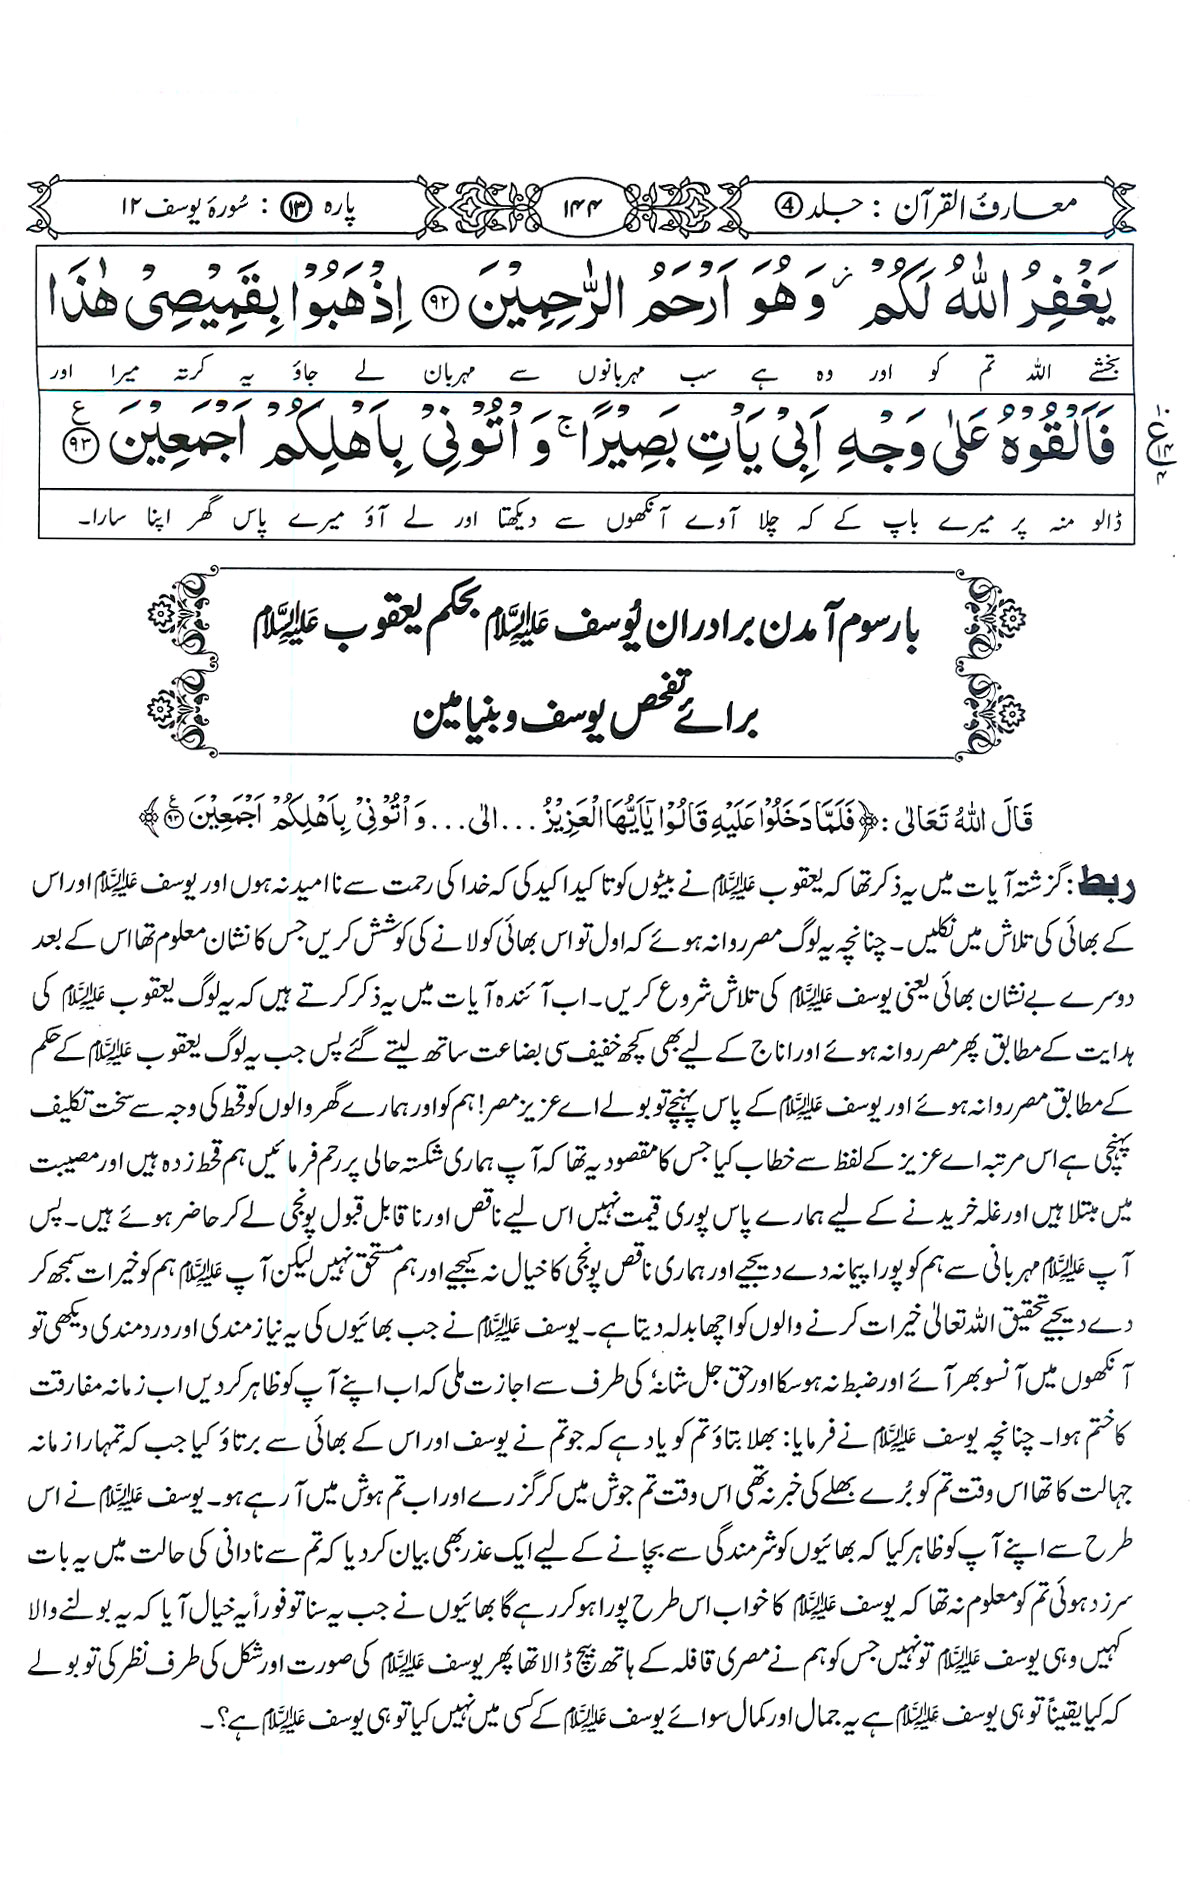 معارف القرآن : جلد ④
۱۴۴
پارہ ⑬ : سُورۂ یوسف ۱۲
يَغْفِرُ اللّٰهُ لَكُمْ ؗ وَهُوَ اَرْحَمُ الرّٰحِمِيْنَ ۝۹۲ اِذْهَبُوْا بِقَمِيْصِيْ هٰذَا
بخشے اللہ تم کو اور وہ ہے سب مہربانوں سے مہربان لے جاؤ یہ کرتہ میرا اور
فَاَلْقُوْهُ عَلٰى وَجْهِ اَبِيْ يَاْتِ بَصِيْرًا ۚ وَاْتُوْنِيْ بِاَهْلِكُمْ اَجْمَعِيْنَ ۝۹۳ ع
۱۰
ع
۱۴
۴
ڈالو منہ پر میرے باپ کے کہ چلا آوے آنکھوں سے دیکھتا اور لے آؤ میرے پاس گھر اپنا سارا۔
بار سوم آمدن برادران یُوسف علیہ السلام بحکم یعقوب علیہ السلام
برائے تفحص یوسف و بنیامین
قَالَ اللّٰهُ تَعَالٰى : ﴿فَلَمَّا دَخَلُوْا عَلَيْهِ قَالُوْا يٰٓاَيُّهَا الْعَزِيْزُ ... الٰى ... وَاْتُوْنِيْ بِاَهْلِكُمْ اَجْمَعِيْنَ ۝۹۳ ع﴾
ربط : گزشتہ آیات میں یہ ذکر تھا کہ یعقوب علیہ السلام نے بیٹوں کو تاکیدا کید کی کہ خدا کی رحمت سے ناامید نہ ہوں اور یوسف علیہ السلام اور اس
کے بھائی کی تلاش میں نکلیں۔ چنانچہ یہ لوگ مصر روانہ ہوئے کہ اول تو اس بھائی کو لانے کی کوشش کریں جس کا نشان معلوم تھا اس کے بعد
دوسرے بے نشان بھائی یعنی یوسف علیہ السلام کی تلاش شروع کریں۔ اب آئندہ آیات میں یہ ذکر کرتے ہیں کہ یہ لوگ یعقوب علیہ السلام کی
ہدایت کے مطابق پھر مصر روانہ ہوئے اور اناج کے لیے بھی کچھ خفیف سی بضاعت ساتھ لیتے گئے پس جب یہ لوگ یعقوب علیہ السلام کے حکم
کے مطابق مصر روانہ ہوئے اور یوسف علیہ السلام کے پاس پہنچے تو بولے اے عزیز مصر! ہم کو اور ہمارے گھر والوں کو قحط کی وجہ سے سخت تکلیف
پہنچی ہے اس مرتبہ اے عزیز کے لفظ سے خطاب کیا جس کا مقصود یہ تھا کہ آپ ہماری شکستہ حالی پر رحم فرمائیں ہم قحط زدہ ہیں اور مصیبت
میں مبتلا ہیں اور غلہ خریدنے کے لیے ہمارے پاس پوری قیمت نہیں اس لیے ناقص اور ناقابل قبول پونجی لے کر حاضر ہوئے ہیں۔ پس
آپ علیہ السلام مہربانی سے ہم کو پورا پیمانہ دے دیجیے اور ہماری ناقص پونجی کا خیال نہ کیجیے اور ہم مستحق نہیں لیکن آپ علیہ السلام ہم کو خیرات سمجھ کر
دے دیجیے تحقیق اللہ تعالیٰ خیرات کرنے والوں کو اچھا بدلہ دیتا ہے۔ یوسف علیہ السلام نے جب بھائیوں کی یہ نیازمندی اور دردمندی دیکھی تو
آنکھوں میں آنسو بھر آئے اور ضبط نہ ہوسکا اور حق جل شانہٗ کی طرف سے اجازت ملی کہ اب اپنے آپ کو ظاہر کردیں اب زمانہ مفارقت
کا ختم ہوا۔ چنانچہ یوسف علیہ السلام نے فرمایا: بھلا بتاؤ تم کو یاد ہے کہ جو تم نے یوسف اور اس کے بھائی سے برتاؤ کیا جب کہ تمہارا زمانہ
جہالت کا تھا اس وقت تم کو بُرے بھلے کی خبر نہ تھی اس وقت تم جوش میں کر گزرے اور اب تم ہوش میں آرہے ہو۔ یوسف علیہ السلام نے اس
طرح سے اپنے آپ کو ظاہر کیا کہ بھائیوں کو شرمندگی سے بچانے کے لیے ایک عذر بھی بیان کردیا کہ تم سے نادانی کی حالت میں یہ بات
سرزد ہوئی تم کو معلوم نہ تھا کہ یوسف علیہ السلام کا خواب اس طرح پورا ہو کر رہے گا بھائیوں نے جب یہ سنا تو فوراً یہ خیال آیا کہ یہ بولنے والا
کہیں وہی یوسف علیہ السلام تو نہیں جس کو ہم نے مصری قافلہ کے ہاتھ بیچ ڈالا تھا پھر یوسف علیہ السلام کی صورت اور شکل کی طرف نظر کی تو بولے
کہ کیا یقیناً تو ہی یوسف علیہ السلام ہے یہ جمال اور کمال سوائے یوسف علیہ السلام کے کسی میں نہیں کیا تو ہی یوسف علیہ السلام ہے؟۔